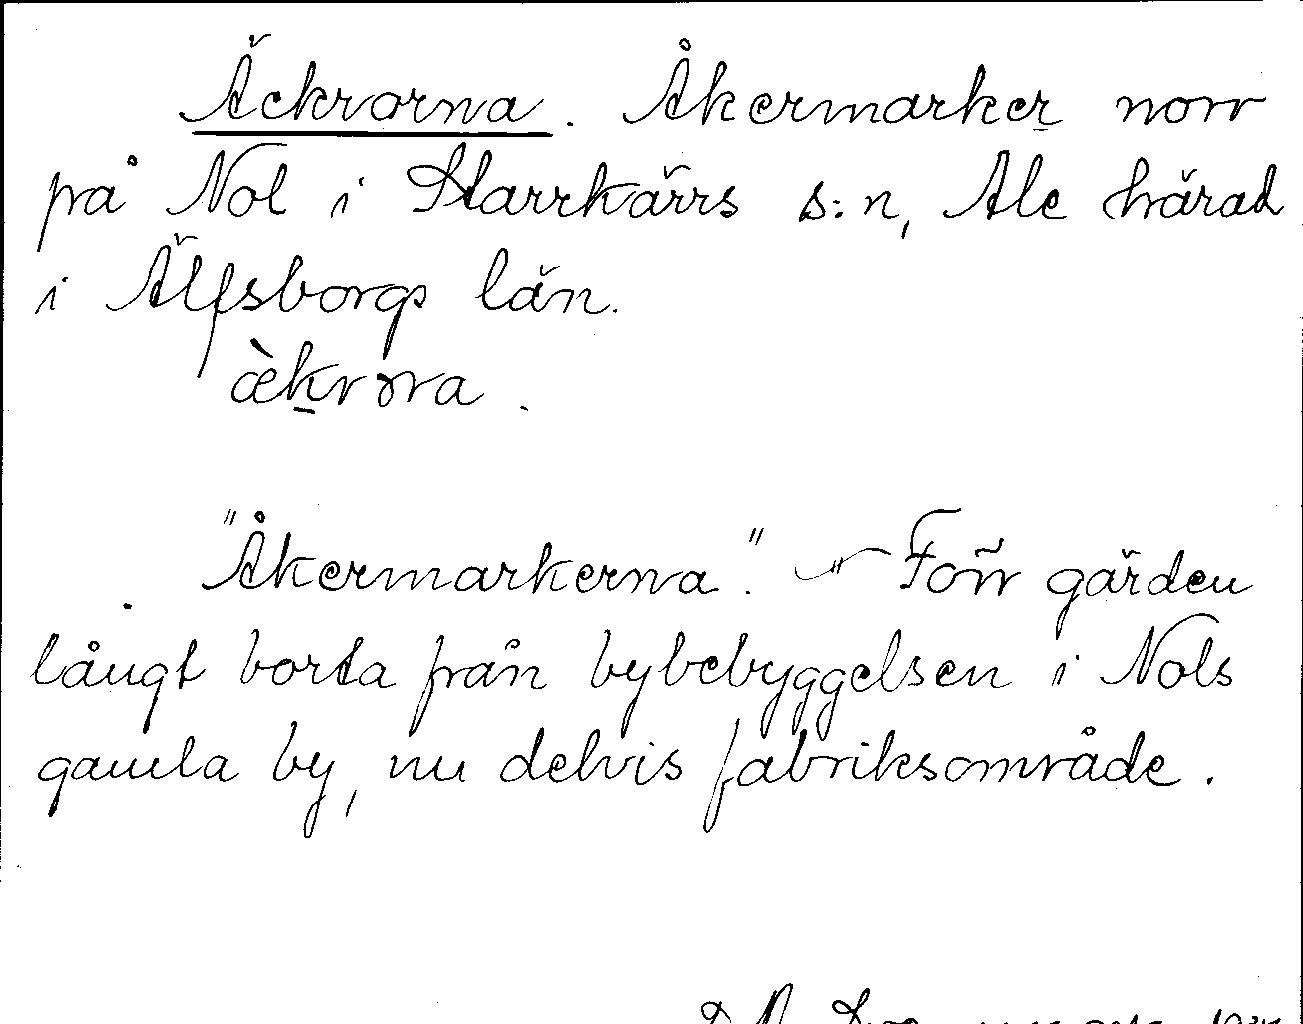 Äckrorna. Åkermarker norr
på Nol i Starrkärrs s:n, Ale härad
i Älfsborgs län.
æ̀krora.
"Åkermarkerna." Förr gärden
långt borta från bybebyggelsen i Nols
gamla by, nu delvis fabriksområde.